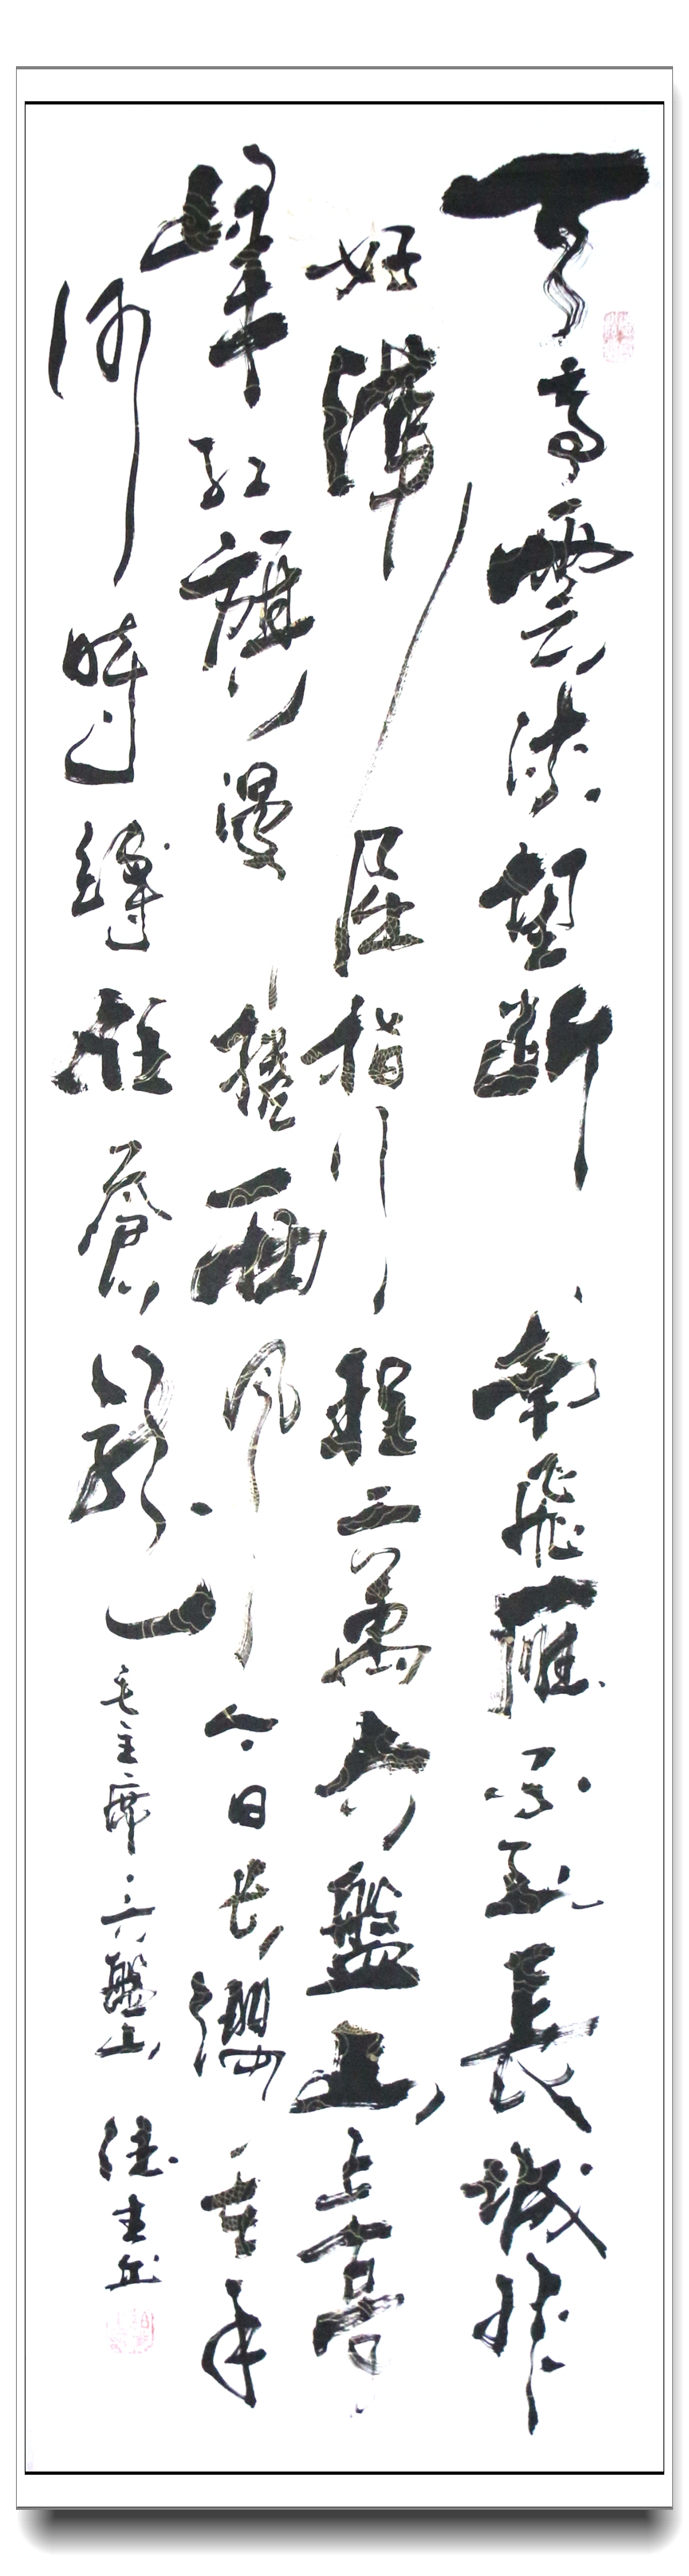 天高雲淡望斷南飛雁不到長城非
好漢屈指行程二萬六盤山上高
峰紅旗漫捲西風今日長纓在手
何時縛住蒼龍 毛主席六盤山